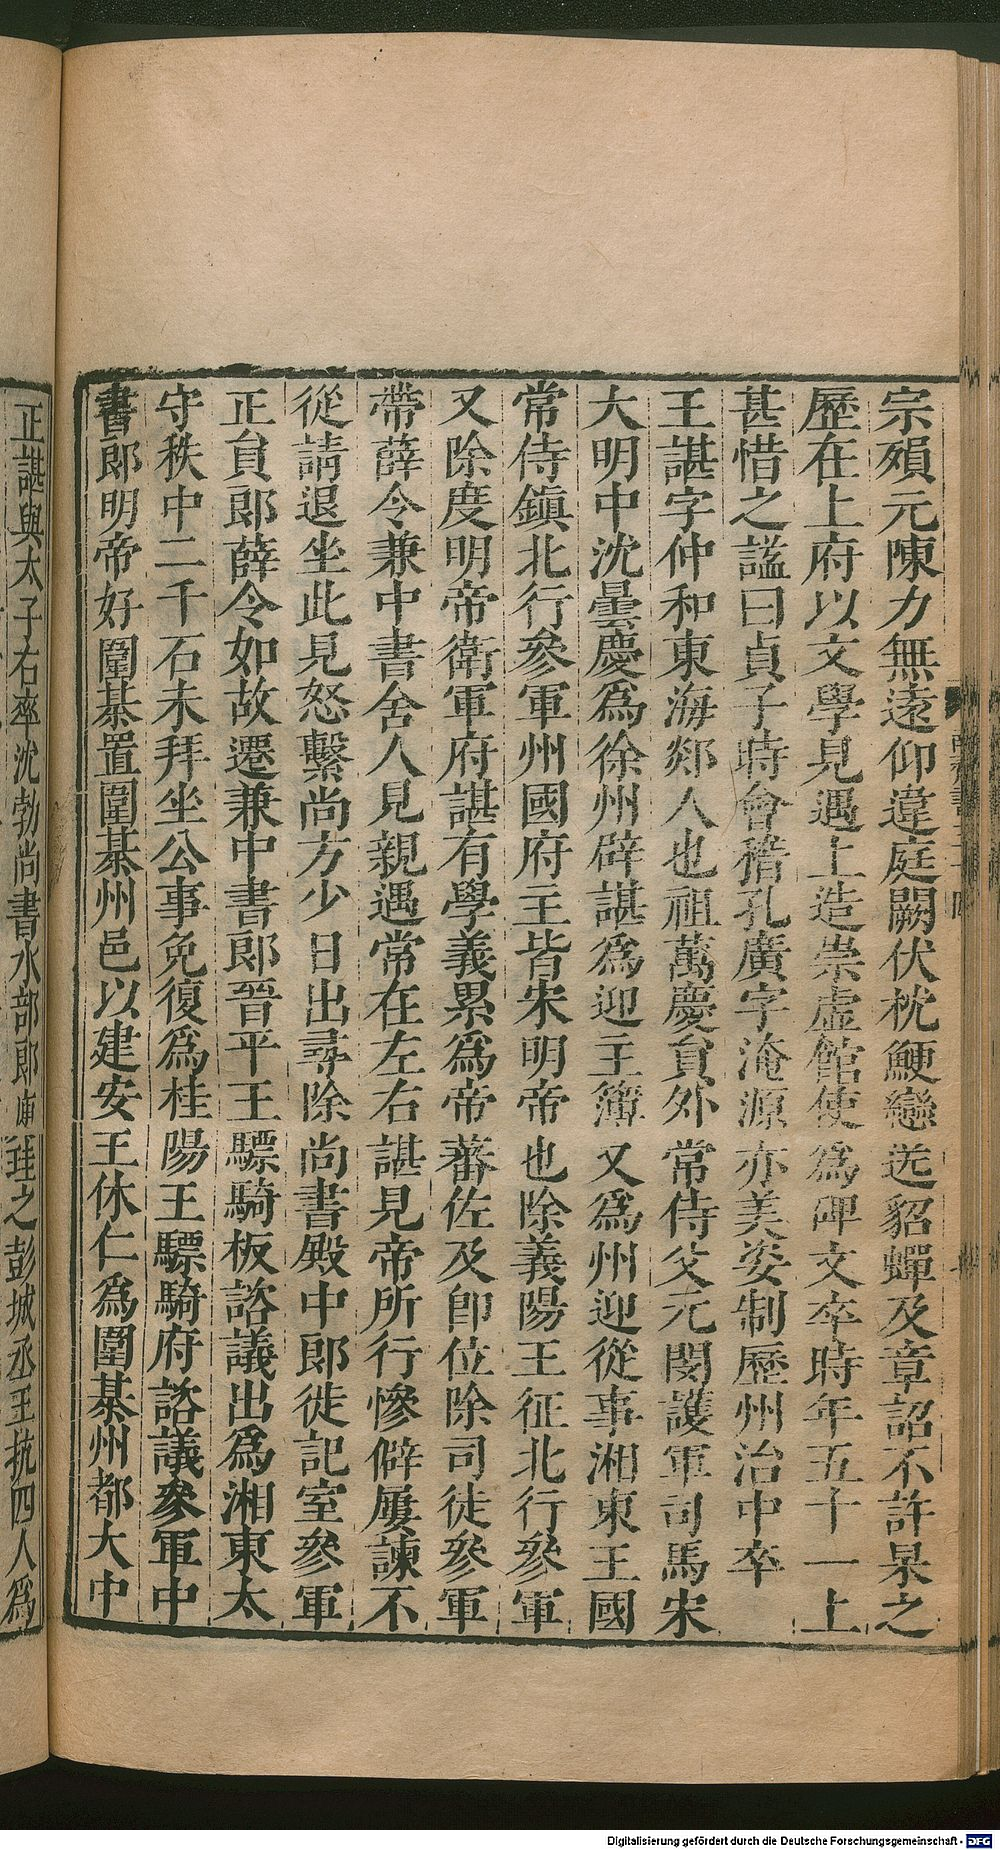 宗殞元陳力無遠仰違庭闕伏枕鯁戀送貂蟬及章詔不許杲之
歷在上府以文學見遇上造崇虛館使爲碑文卒時年五十一上
甚惜之謚曰貞子時會稽孔廣字淹源亦美姿制歷州治中卒
王諶字仲和東海郯人也祖萬慶貟外常侍父元閔護軍司馬宋
大明中沈曇慶爲徐州辟諶爲迎主簿又爲州迎從事湘東王國
常侍鎮北行參軍州國府主皆宋明帝也除義陽王征北行參軍
又除度明帝衛軍府諶有學義累爲帝蕃佐及卽位除司徒參軍
帶薛令兼中書舍人見親遇常在左右諶見帝所行慘僻屢諫不
從請退坐此見怒繫尚方少日出尋除尚書殿中郎徙記室參軍
正貟郎薛令如故遷兼中書郎晉平王驃騎板諮議出爲湘東太
守秩中二千石未拜坐公事免復爲桂陽王驃騎府諮議參軍中
書郎明帝好圍棊置圍棊州邑以建安王休仁爲圍棊州都大中
正諶與太子右率沈勃尚書水部郎庾珪之彭城丞王抗四人爲
Digitalisierung gefördert durch die Deutsche Forschungsgemeinschaft - DFG